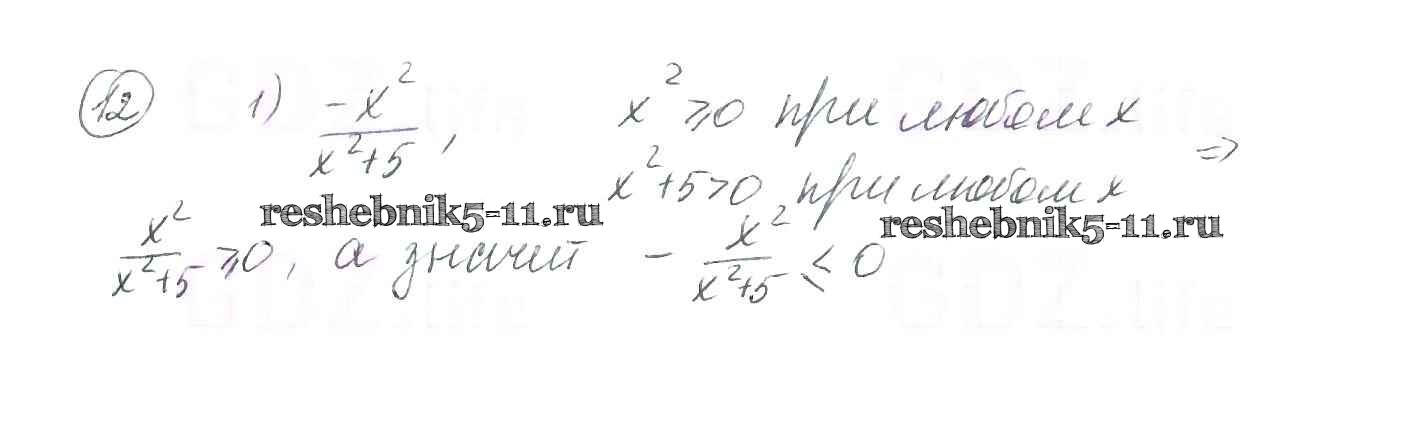 12 1) -x²/(x²+5), x² ⩾ 0 при любом x
x²+5>0 при любом x =>
reshebnik5-11.ru reshebnik5-11.ru
x²/(x²+5) ⩾ 0, а значит - x²/(x²+5) ⩽ 0
GDZ.life GDZ.life
GDZ.life GDZ.life